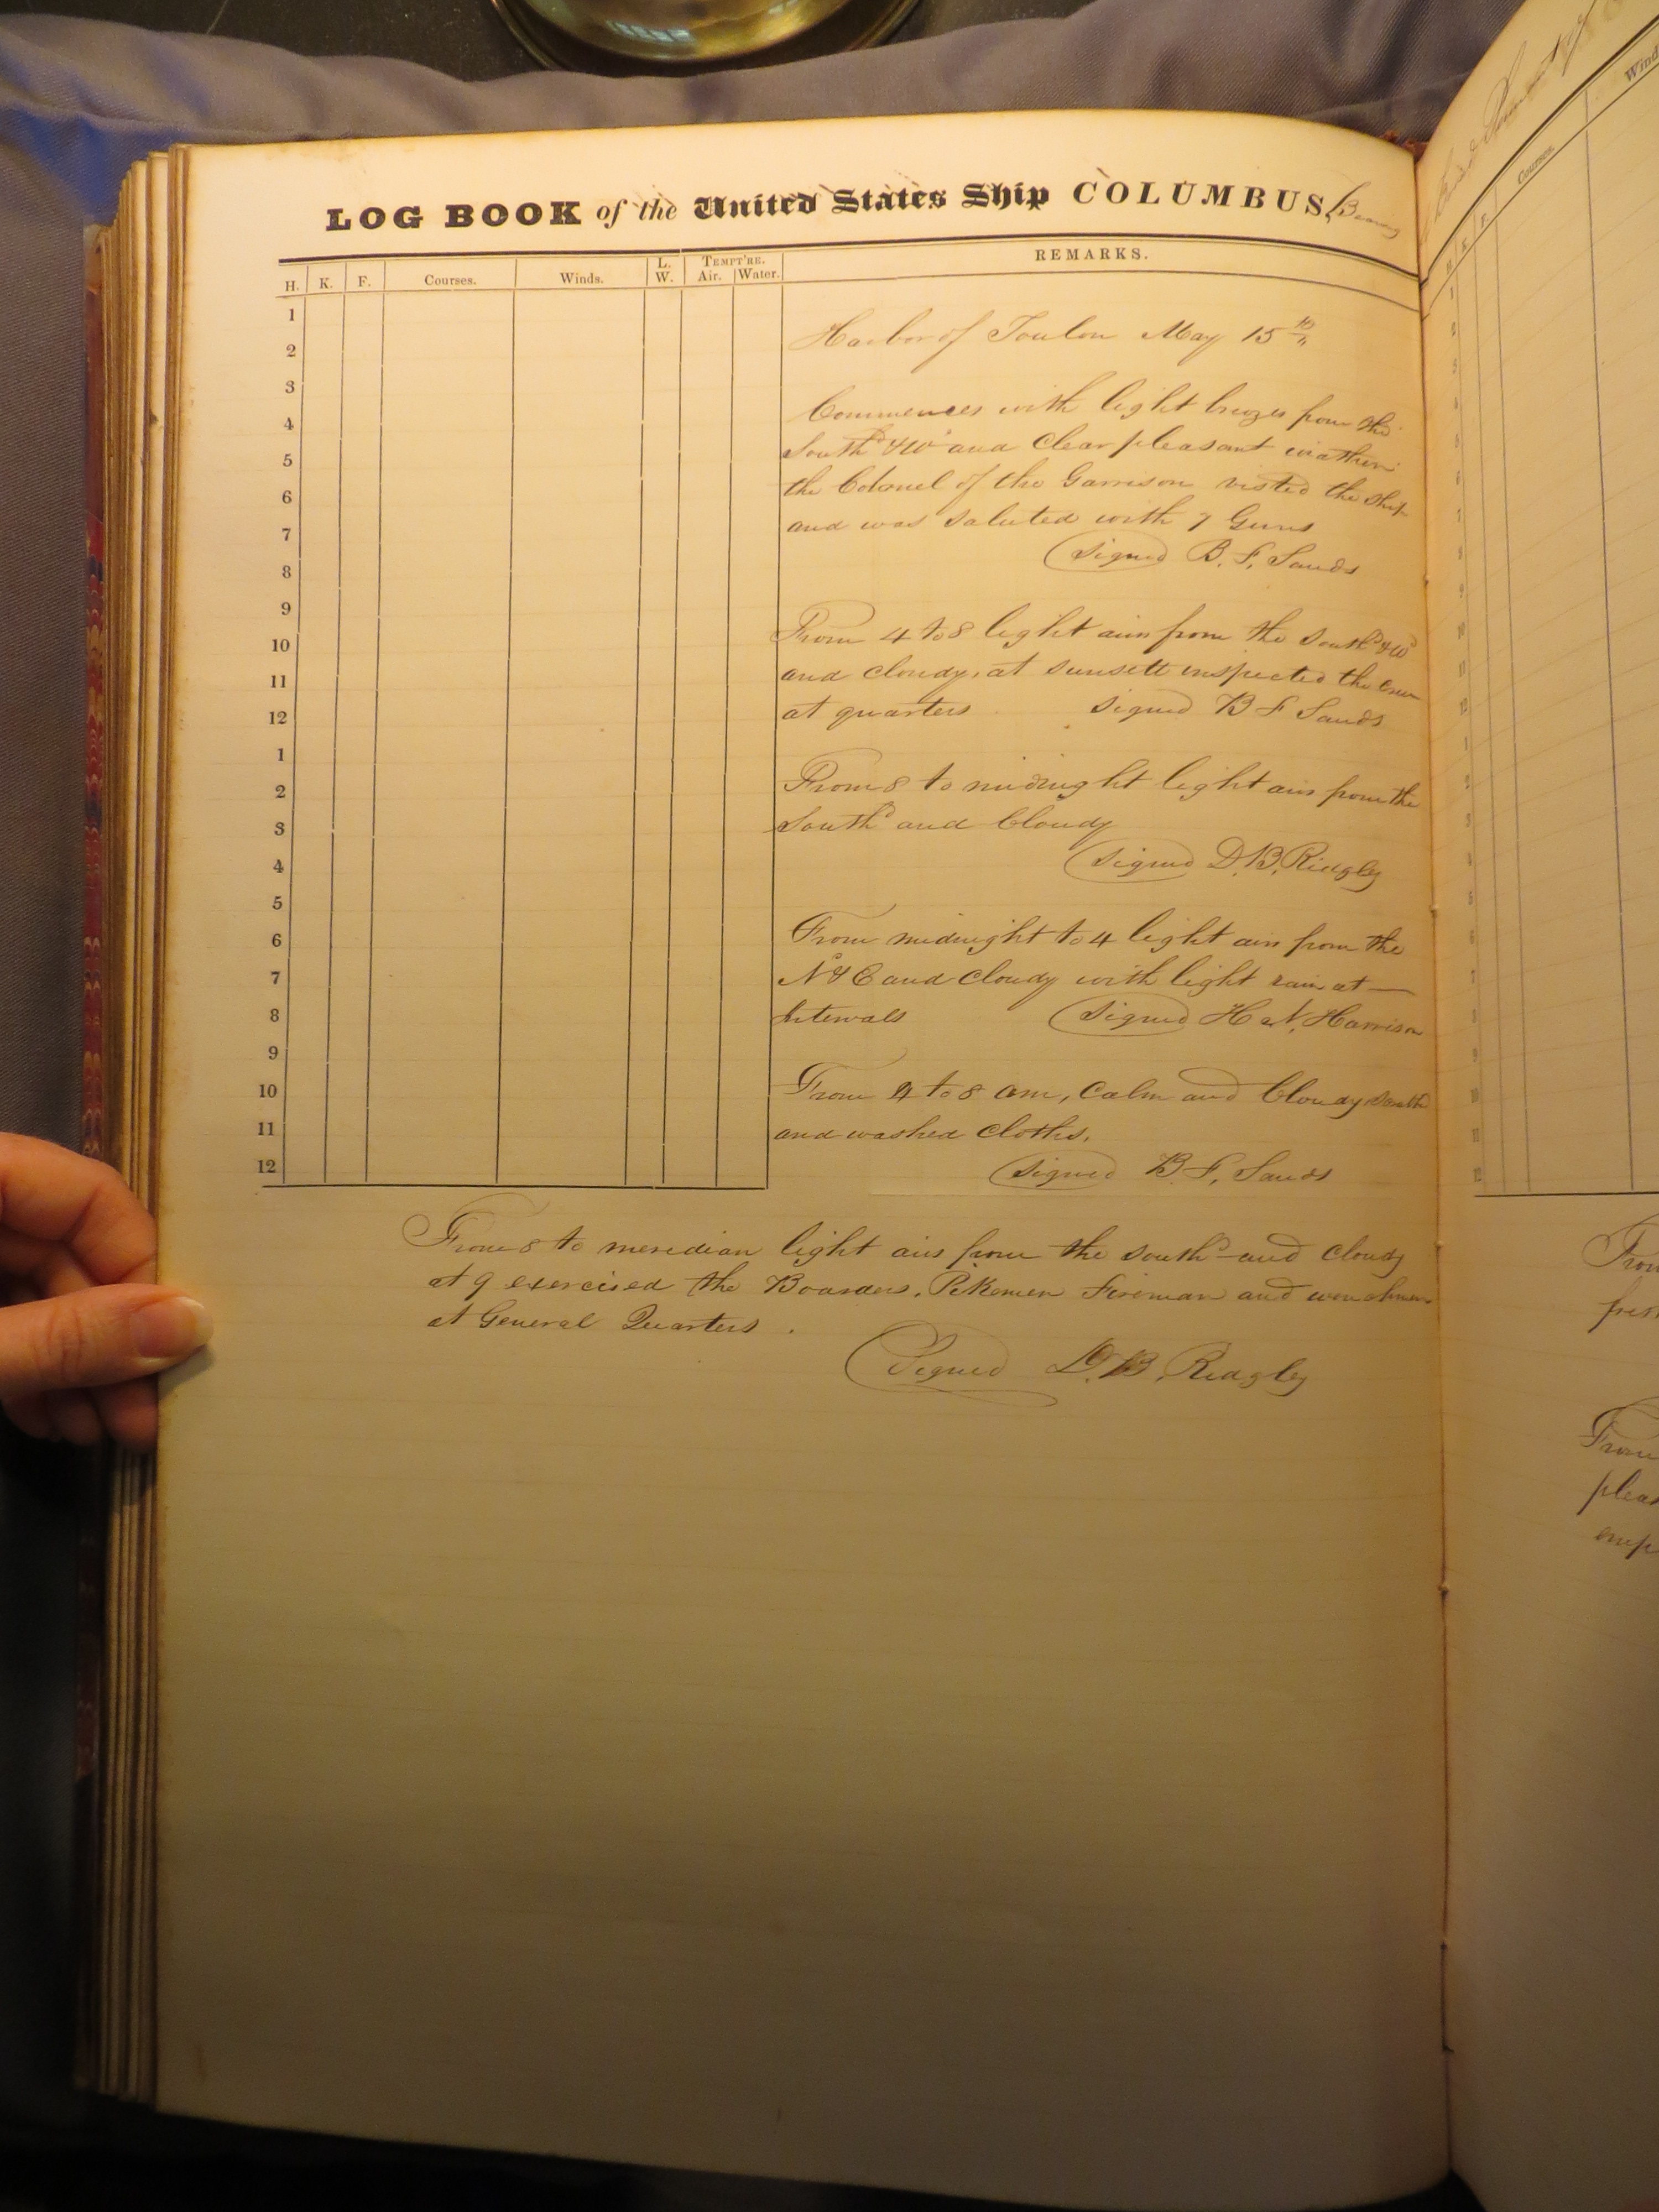 LOG BOOK of the United States Ship COLUMBUS, Bearing
H. K. F. Courses. Winds. L. W. TEMPT'RE. Air. Water. REMARKS.
1
2
3
4
5
6
7
8
9
10
11
12
1
2
3
4
5
6
7
8
9
10
11
12
Harbor of Toulon May 15
Commences with light breezes from the
South & Wd and Clear pleasant weather
the Colonel of the Garrison visted the ship
and was saluted with 7 Guns
Signed B. F. Sands
From 4 to 8 light airs from the Southd & Wd
and cloudy, at sunsett inspected the crew
at quarters Signed B F Sands
From 8 to midnight light airs from the
Southd and Cloudy
Signed D. B. Ridgley
From midnight to 4 light airs from the
Nd & E and cloudy with light rain at —
Intervals Signed H. N. Harrison
From 4 to 8 am, Calm and Cloudy
and washed cloths.
Signed B. F. Sands
From 8 to meridian light airs from the southd and cloudy
at 9 exercised the Boarders, Pikemen Fireman and
at General Quarters.
Signed D. B. Ridgley
Courses.
Wind
From
fres
From
pleas
emp